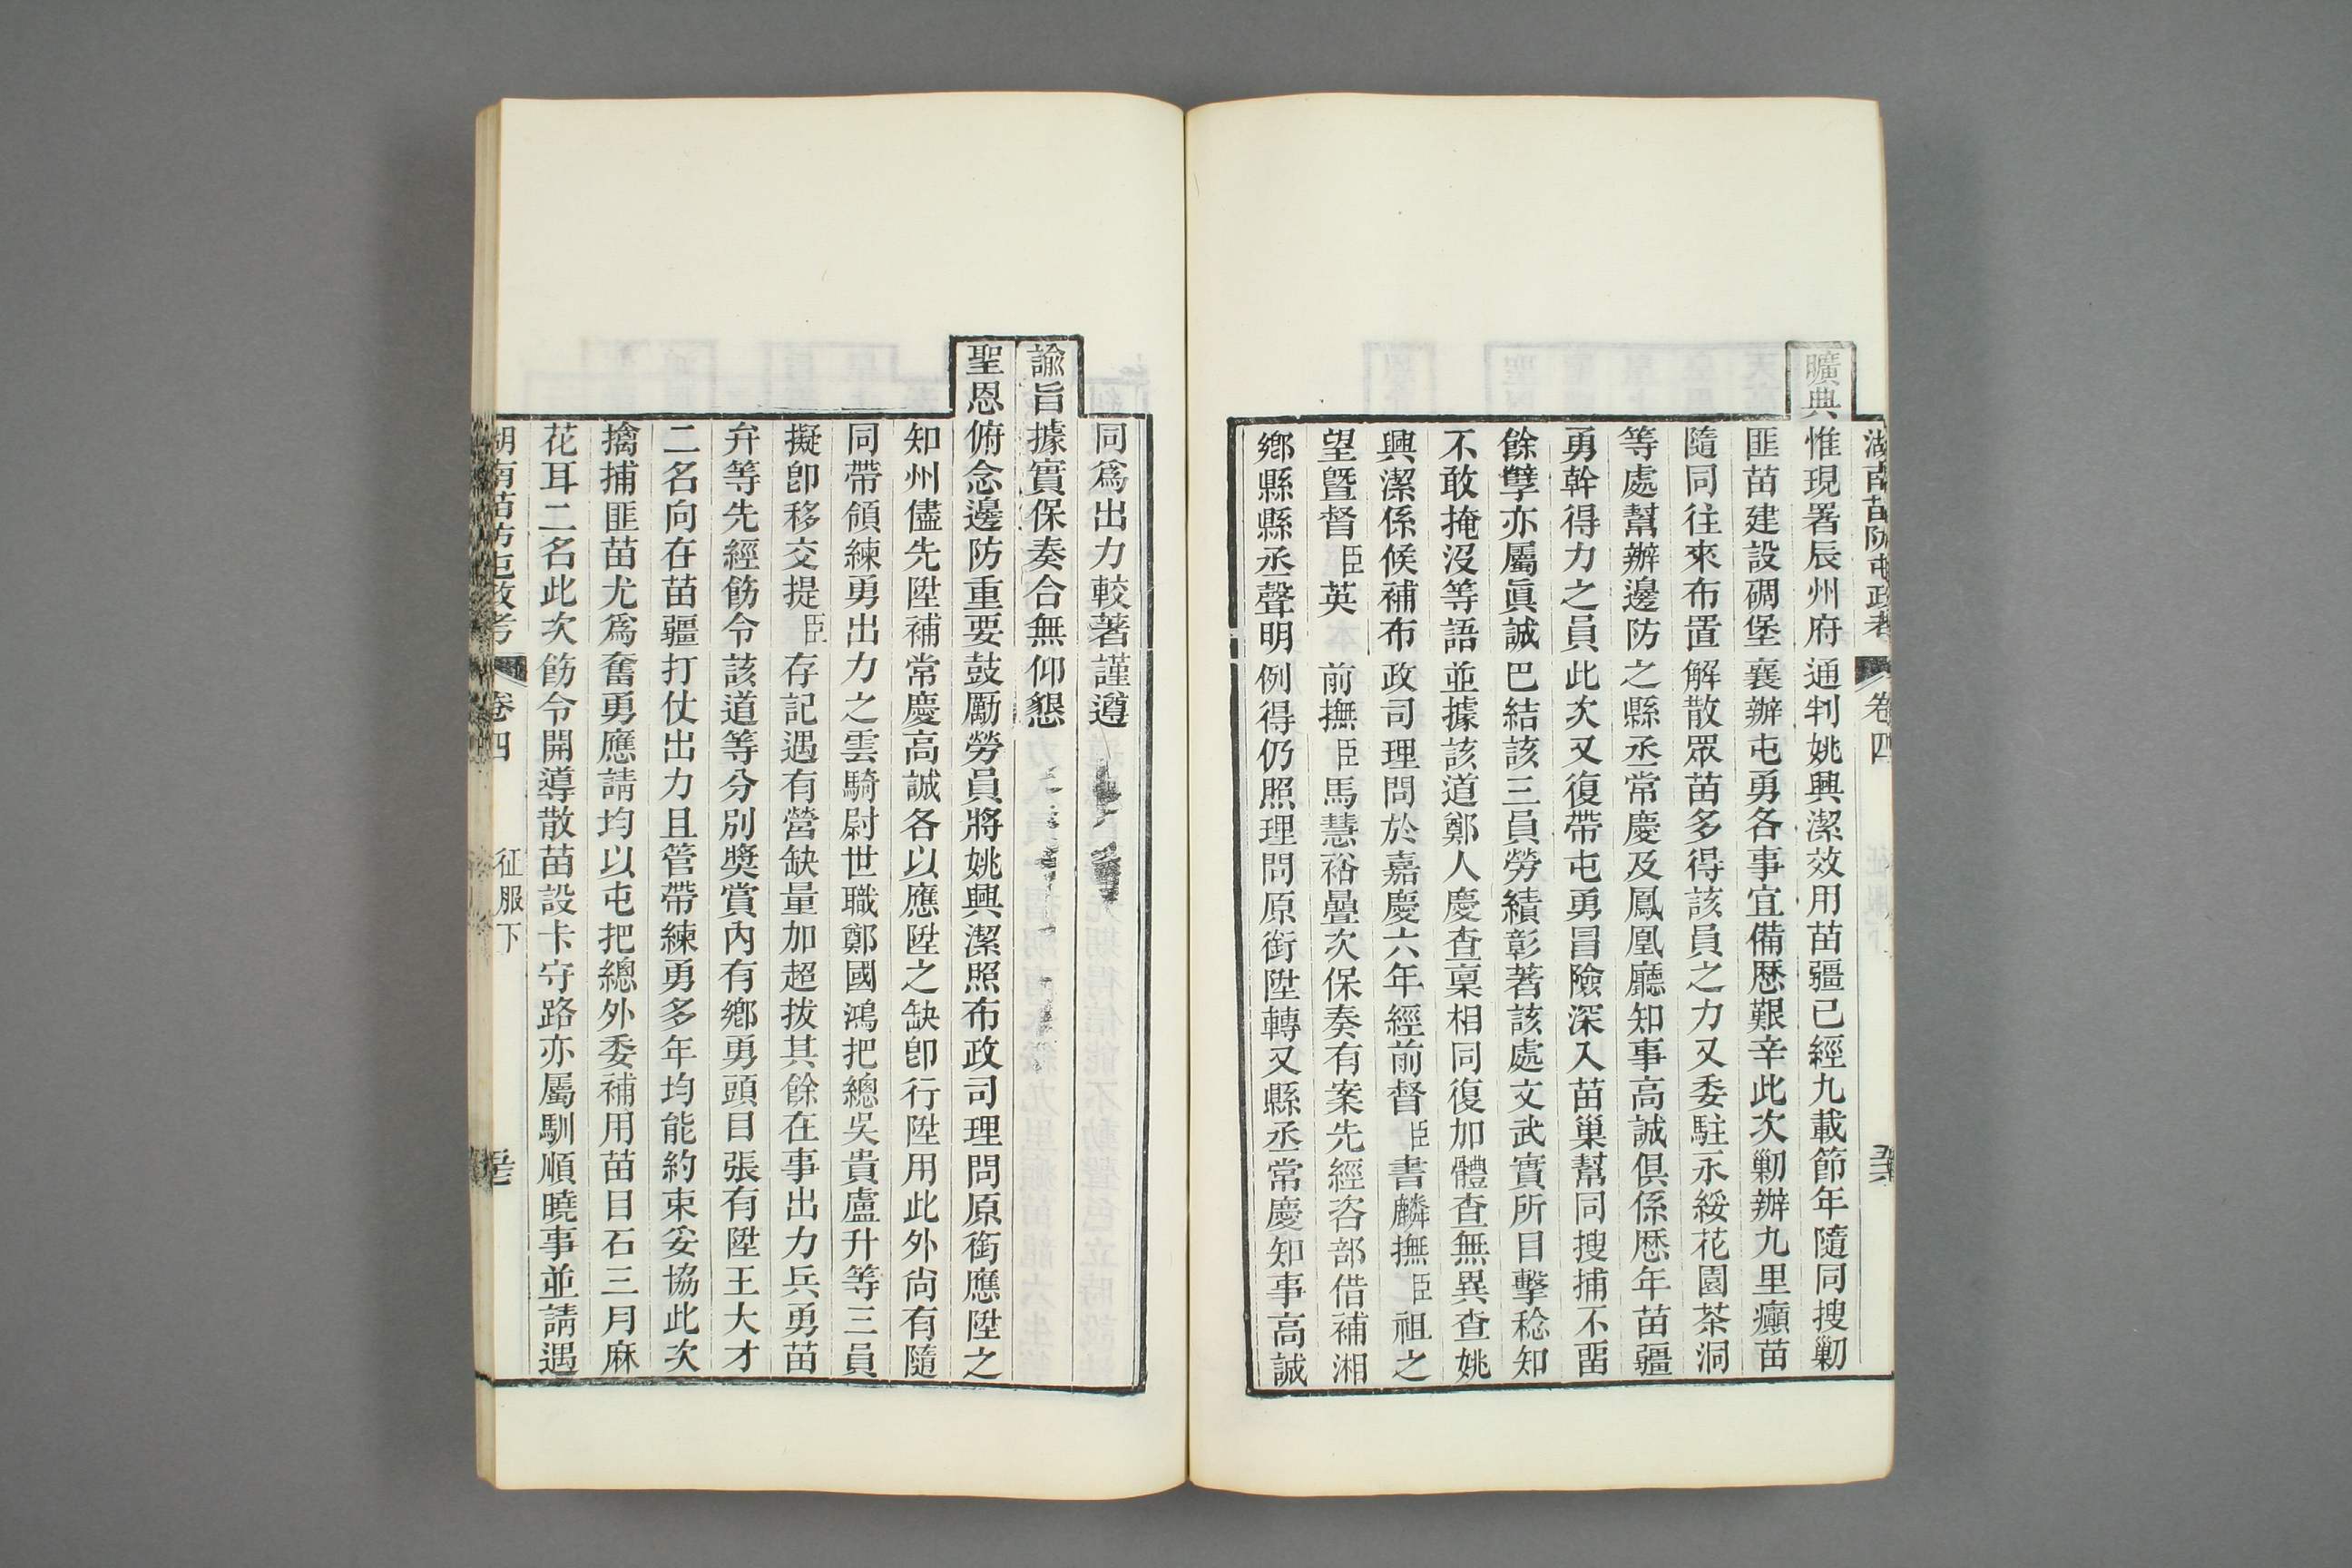 湖南苗防屯政考 卷四
曠典惟現署辰州府通判姚興潔效用苗疆已經九載節年隨同搜剿
匪苗建設碉堡襄辦屯勇各事宜備歷艱辛此次剿辦九里癲苗
隨同往來布置解散眾苗多得該員之力又委駐永綏花園茶洞
等處幫辦邊防之縣丞常慶及鳳凰廳知事高誠俱係歷年苗疆
勇幹得力之員此次又復帶屯勇冒險深入苗巢幫同搜捕不畱
餘孽亦屬眞誠巴結該三員勞績彰著該處文武實所目擊稔知
不敢掩沒等語並據該道鄭人慶查稟相同復加體查無異查姚
興潔係候補布政司理問於嘉慶六年經前督臣書麟撫臣祖之
望曁督臣英前撫臣馬慧裕曡次保奏有案先經咨部借補湘
鄉縣縣丞聲明例得仍照理問原銜陞轉又縣丞常慶知事高誠
同爲出力較著謹遵
諭旨據實保奏合無仰懇
聖恩俯念邊防重要鼓勵勞員將姚興潔照布政司理問原銜應陞之
知州儘先陞補常慶高誠各以應陞之缺卽行陞用此外尙有隨
同帶領練勇出力之雲騎尉世職鄭國鴻把總吳貴盧升等三員
擬卽移交提臣存記遇有營缺量加超拔其餘在事出力兵勇苗
弁等先經飭令該道等分別獎賞內有鄉勇頭目張有陞王大才
二名向在苗疆打仗出力且管帶練勇多年均能約束妥協此次
擒捕匪苗尤爲奮勇應請均以屯把總外委補用苗目石三月麻
花耳二名此次飭令開導散苗設卡守路亦屬馴順曉事並請遇
湖南苗防屯政考 卷四 征服下